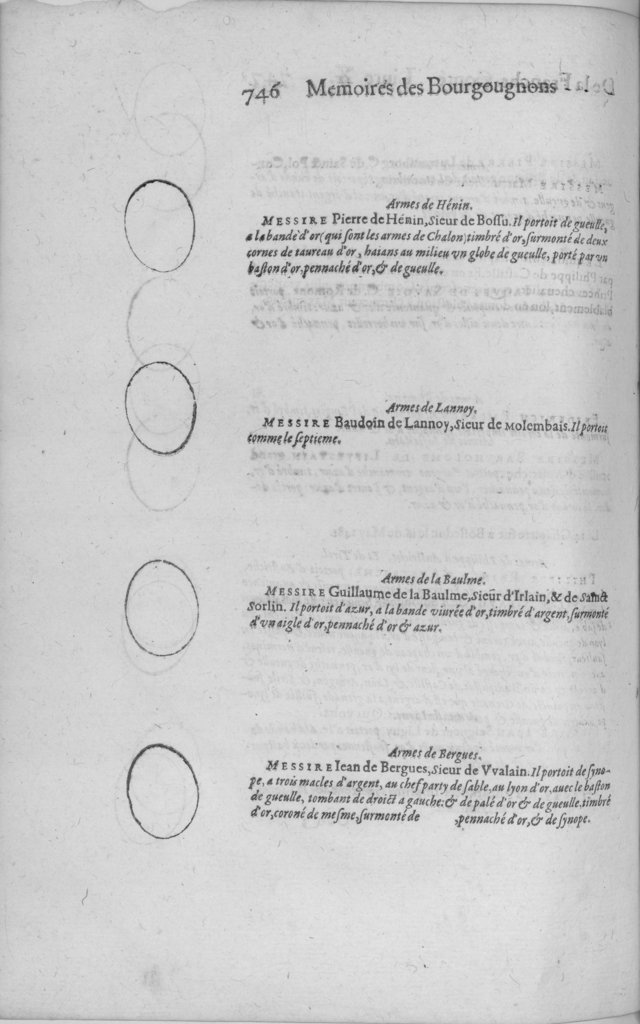 746 Memoires des Bourgougnons
Armes de Hénin.
MESSIRE Pierre de Hénin, Sieur de Boſſu. Il portoit de gueulle,
a la bande d'or (qui ſont les armes de Chalon) timbré d'or, ſurmonté de deux
cornes de taureau d'or, haians au milieu vn globe de gueulle, porté par vn
baſton d'or, pennaché d'or, & de gueulle.
Armes de Lannoy.
MESSIRE Baudoin de Lannoy, Sieur de Molembais. Il portoit
comme le ſeptieme.
Armes de la Baulme.
MESSIRE Guillaume de la Baulme, Sieur d'Irlain, & de Sainct
Sorlin. Il portoit d'azur, a la bande viurée d'or, timbré d'argent, ſurmonté
d'vn aigle d'or, pennaché d'or & azur.
Armes de Bergues.
MESSIRE Iean de Bergues, Sieur de Vvalain. Il portoit de ſyno-
pe, a trois macles d'argent, au chef party de ſable, au lyon d'or, auec le baſton
de gueulle, tombant de droict a gauche: & de palé d'or & de gueulle, timbré
d'or, coroné de meſme, ſurmonté de , pennaché d'or, & de ſynope.